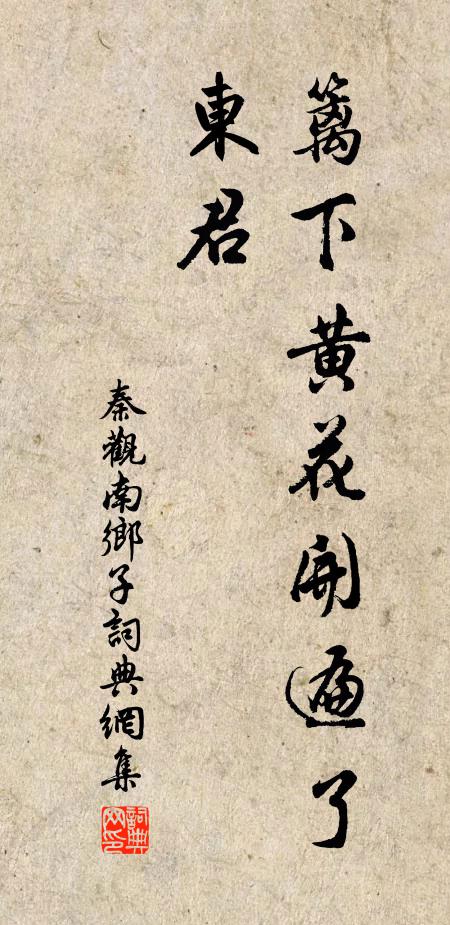 篱下黄花開遍了
東君
秦觀南鄉子詞典網集
詞典網印